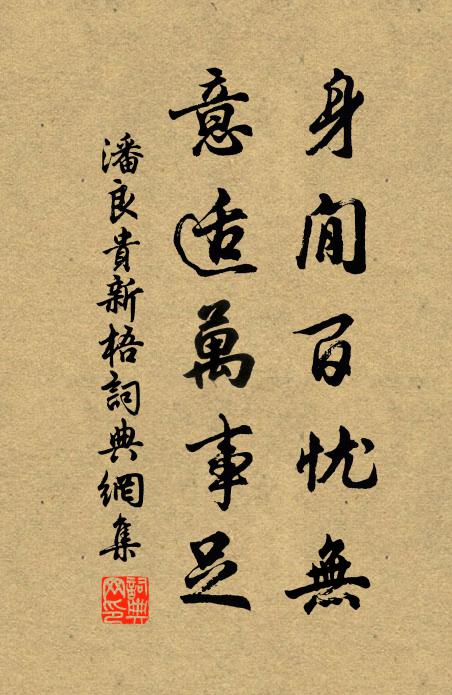 身閒百忧無
意适萬事足
潘良貴新梧詞典網集
詞典网印